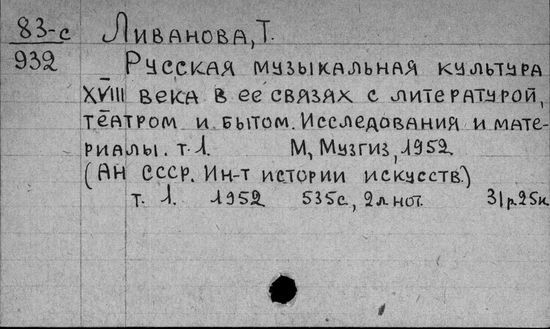 83-с Ливанова, Т.
932 Русская музыкальная культура
XVIII века в ее связях с литературой,
театром и бытом. Исследования и мате-
риалы. т. 1. М, Музгиз, 1952
(Ан СССР. Ин-т истории искусств.)
т. 1. 1952 535с., 2л нот. 31р.25к.